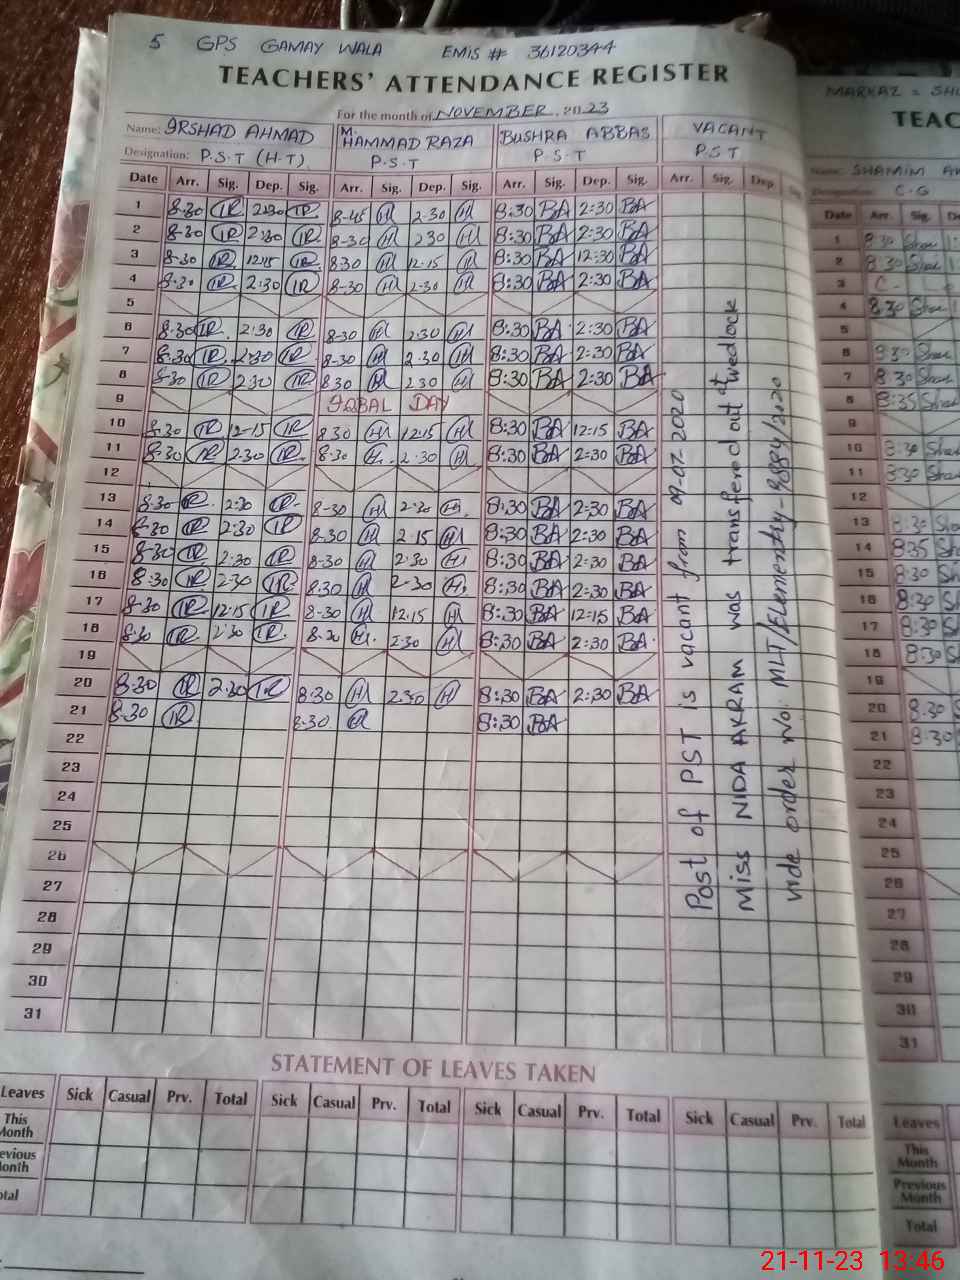 5 GPS GAMAY WALA EMIS # 36120344
TEACHERS' ATTENDANCE REGISTER
For the month of NOVEMBER 2023
Name: IRSHAD AHMAD M. HAMMAD RAZA BUSHRA ABBAS VACANT
Designation: P.S.T (H.T) P.S.T P.S.T P.S.T
Date Arr. Sig. Dep. Sig. Arr. Sig. Dep. Sig. Arr. Sig. Dep. Sig. Arr. Sig. Dep
1 8-30 IR 2:30 IR 8-45 H 2-30 H 8:30 BA 2:30 BA
2 8-30 IR 2:30 IR 8-30 H 230 H 8:30 BA 2:30 BA
3 8-30 IR 12:15 IR 830 H 12-15 H 8:30 BA 12:30 BA
4 8-30 IR 2:30 IR 8-30 H 2-30 H 8:30 BA 2:30 BA
5
6 8-30 IR 2:30 IR 8-30 H 2:30 H 8:30 BA 2:30 BA
7 8-30 IR 2:30 IR 8-30 H 2-30 H 8:30 BA 2:30 BA
8 8-30 IR 2:30 IR 8-30 H 230 H 8:30 BA 2:30 BA
9 IQBAL DAY
10 8-30 IR 12-15 IR 830 H 12:15 H 8:30 BA 12:15 BA
11 8-30 IR 2-30 IR 8-30 H 2-30 H 8:30 BA 2:30 BA
12
13 8-30 IR 2:30 IR 8-30 H 2-30 H 8:30 BA 2:30 BA
14 8-30 IR 2:30 IR 8-30 H 2-15 H 8:30 BA 2:30 BA
15 8-30 IR 2:30 IR 8-30 H 2-30 H 8:30 BA 2:30 BA
16 8:30 IR 2-30 IR 8.30 H 2-30 H 8:30 BA 2:30 BA
17 8-30 IR 12:15 IR 8-30 H 12.15 H 8:30 BA 12:15 BA
18 8:30 IR 2:30 IR 8-30 H 2:30 H 8:30 BA 2:30 BA
19
20 8-30 IR 2:30 IR 8-30 H 2-30 H 8:30 BA 2:30 BA
21 8-30 IR 8-30 H 8:30 BA
22
23
24
25
26
27
28
29
30
31
Post of PST is vacant from 09-02-2020
Miss NIDA AKRAM was transfered out of wedlock
vide order no: MLT/Elementry-9884/2020
STATEMENT OF LEAVES TAKEN
Leaves Sick Casual Prv. Total Sick Casual Prv. Total Sick Casual Prv. Total Sick Casual Prv. Total
This Month
evious
onth
otal
MARKAZ = SH
TEAC
Name: SHAMIM
C.G
Date Arr. Sig.
1 8:30
2 8:30
3 C-
4 8:30
5
6 8:30
7 8:30
8 8:35
9
10 8:30
11 8:30
12
13 8:30
14 8:35
15 8:30
16 8:30
17 8:30
18 8:30
19
20 8:30
21 8:30
22
23
24
25
26
27
28
29
30
31
Leaves
This Month
Previous Month
Total
21-11-23 13:46